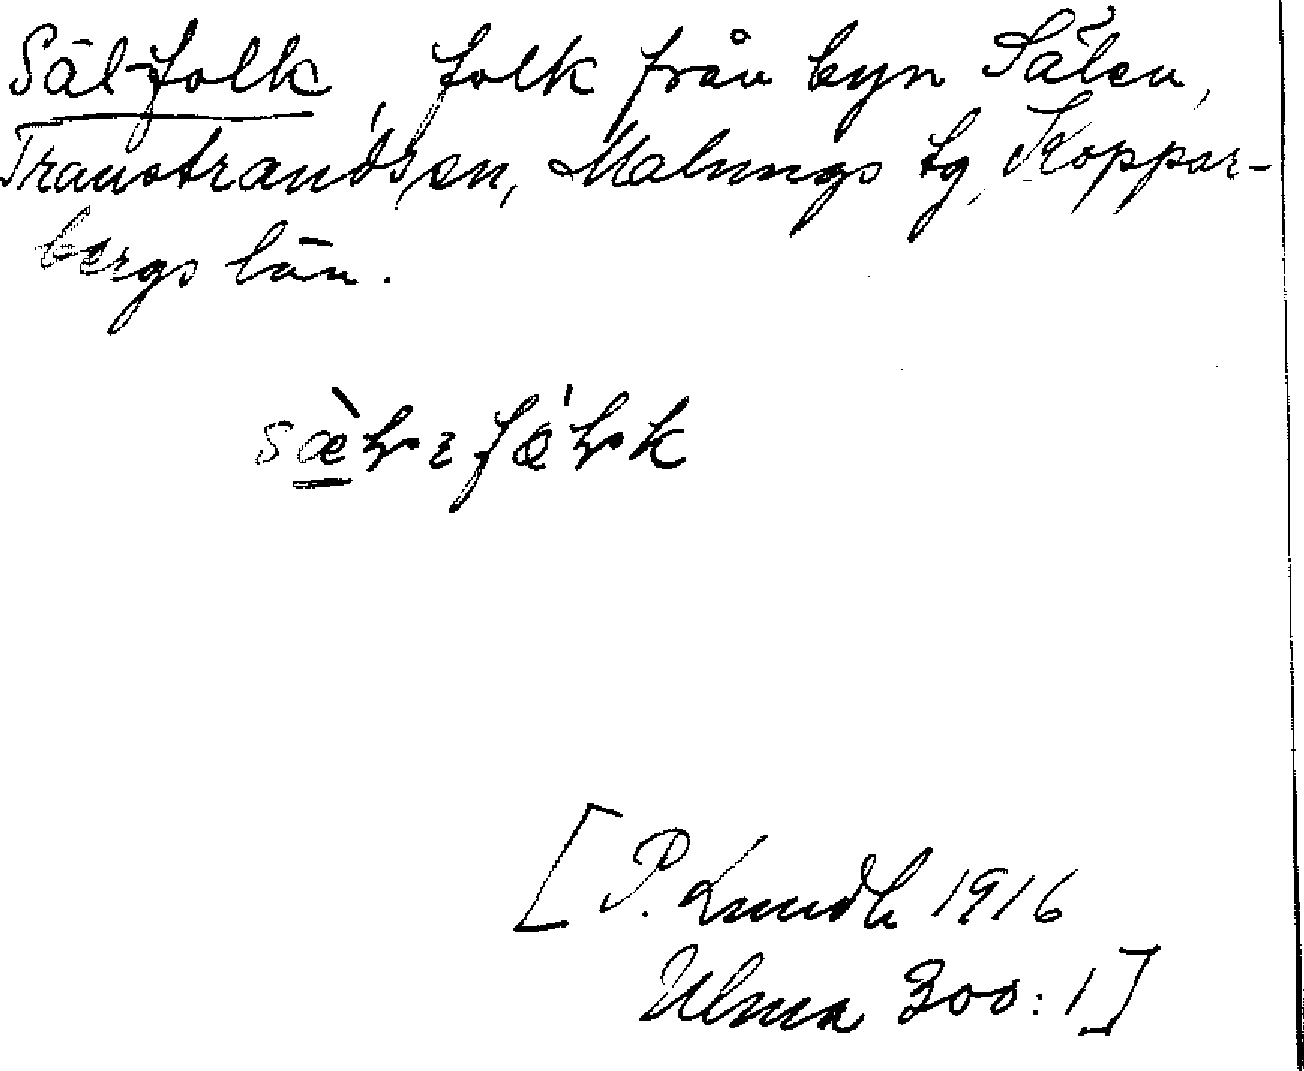 Säl-folk, folk från byn Sälen,
Transtrands sn, Malungs tg, Koppar-
bergs län.
[P. Lundh 1916
Ulma 300:1]